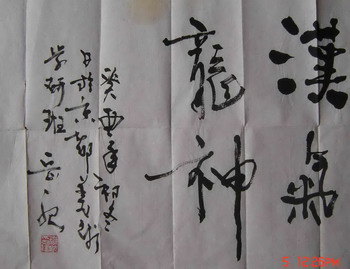 漢
龍神
癸酉年初冬
日於京都美術
学研班 岳